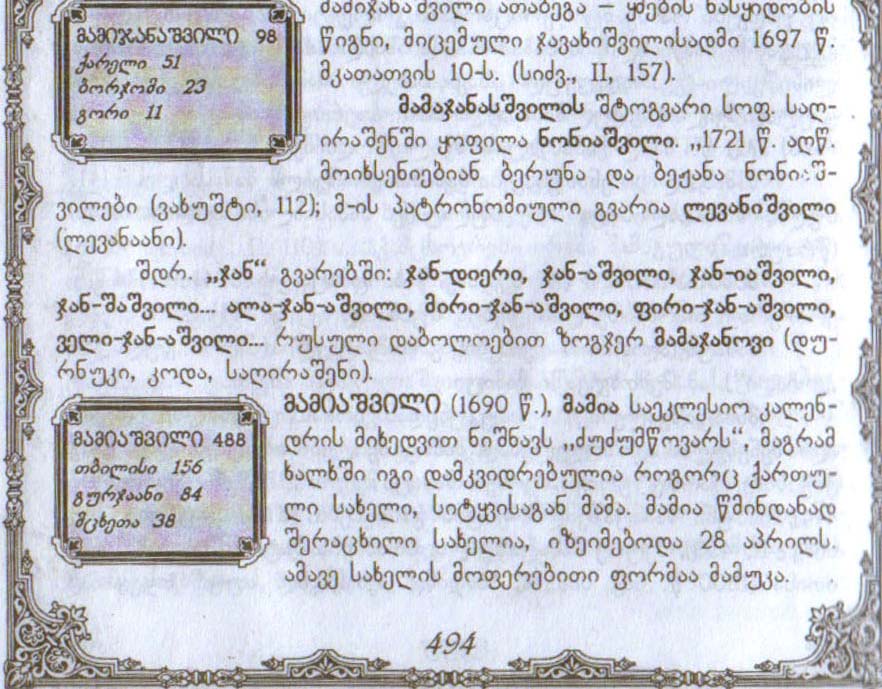 მამიჯანაშვილი ათაბეგა – ყმების ნასყიდობის
ᲛᲐᲛᲘᲯᲐᲜᲐᲨᲕᲘᲚᲘ 98
ქარელი 51
ბორჯომი 23
გორი 11
წიგნი, მიცემული ჯავახიშვილისადმი 1697 წ.
მკათათვის 10-ს. (სიძვ., II, 157).
მამაჯანასშვილის შტოგვარი სოფ. საღ-
ირაშენში ყოფილა ნონიაშვილი. „1721 წ. აღწ.
მოიხსენიებიან ბერუნა და ბეჟანა ნონიაშ-
ვილები (ვახუშტი, 112); მ-ის პატრონომიული გვარია ლევანიშვილი
(ლევანაანი).
შდრ. „ჯან“ გვარებში: ჯან-დიერი, ჯან-აშვილი, ჯან-იაშვილი,
ჯან-შაშვილი... ალა-ჯან-აშვილი, მირი-ჯან-აშვილი, ფირი-ჯან-აშვილი,
ველი-ჯან-აშვილი... რუსული დაბოლოებით ზოგჯერ მამაჯანოვი (დუ-
რნუკი, კოდა, საღირაშენი).
ᲛᲐᲛᲘᲐᲨᲕᲘᲚᲘ 488
თბილისი 156
გურჯაანი 84
მცხეთა 38
ᲛᲐᲛᲘᲐᲨᲕᲘᲚᲘ (1690 წ.), მამია საეკლესიო კალენ-
დრის მიხედვით ნიშნავს „ძუძუმწოვარს“, მაგრამ
ხალხში იგი დამკვიდრებულია როგორც ქართუ-
ლი სახელი, სიტყვისაგან მამა. მამია წმინდანად
შერაცხილი სახელია, იზეიმებოდა 28 აპრილს.
ამავე სახელის მოფერებითი ფორმაა მამუკა.
494